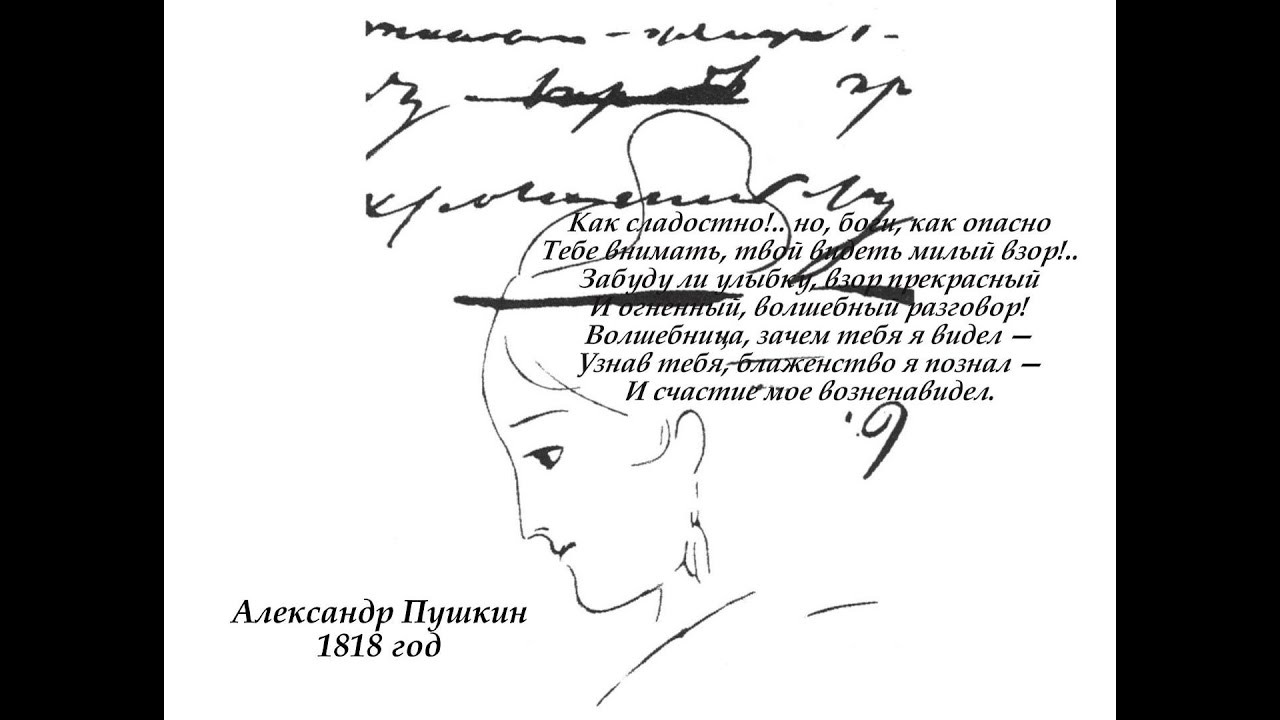 Как сладостно!.. но, боги, как опасно
Тебе внимать, твой видеть милый взор!..
Забуду ли улыбку, взор прекрасный
И огненный, волшебный разговор!
Волшебница, зачем тебя я видел —
Узнав тебя, блаженство я познал —
И счастие мое возненавидел.
Александр Пушкин
1818 год